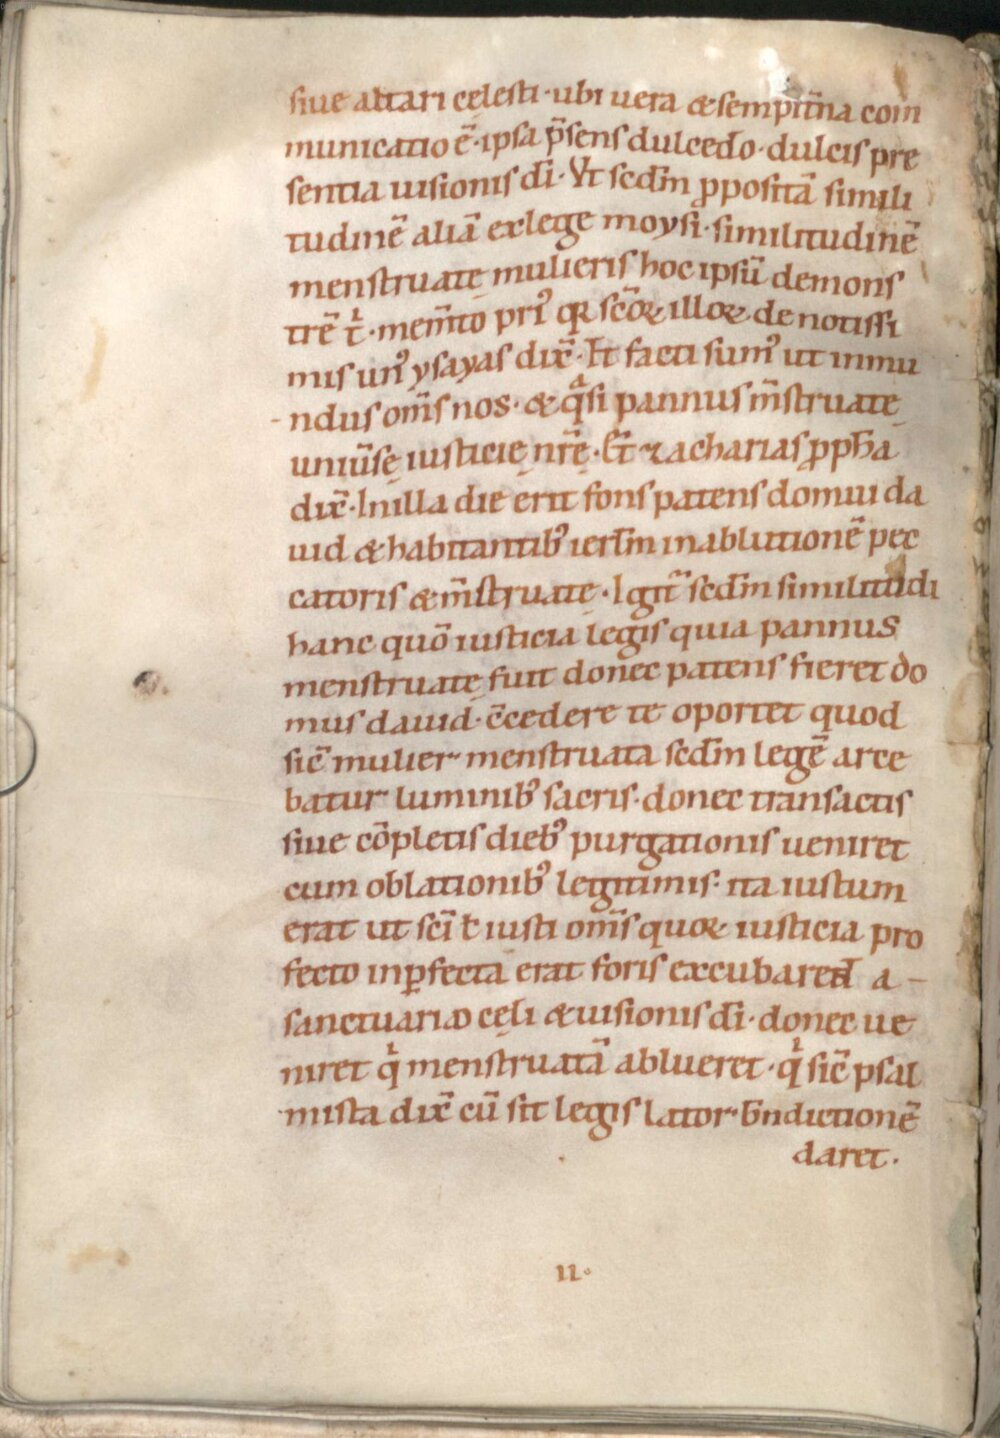 siue altari cęlesti · ubi uera & sempit̄na com
municatio ē · ipsa p̄sens dulcedo · dulcis pre
sentia uisionis dī · Vt scd̄m ꝓpositā simili
tudinē aliā ex lege moysi · similitudinē
menstruatę mulieris hoc ipsū demons
trē t͛ · mem̄to pri᾽ qꝛ scōꝝ illoꝝ de notissi
mis un᾽ ysayas dix̄ · Et facti sum᾽ ut inmu
ndus om̄s nos · & qͣsi pannus m̄struatę
uniūsę iusticię nr̄ę · Et̄ zacharias ꝓph̄a
dix̄ · In illa die erit fons patens domui da
uid & habitantib᾽ ierl̄m in ablutionē pec
catoris & m̄struatę · Igit᷑ scd̄m similitudi
hanc quō iusticia legis quia pannus
menstruatę fuit donec patens fieret do
mus dauid · c̄cedere te oportet quod
sic̄ mulier menstruata scd̄m legē arce
batur luminib᾽ sacris · donec transactis
siue cōpletis dieb᾽ purgationis ueniret
cum oblationib᾽ legitimis · ita iustum
erat ut scī ł iusti om̄s quoꝝ iusticia pro
fecto inꝑfecta erat foris excubarent a
sanctuario cęli & uisionis dī · donec ue
niret qͥ menstruatā ablueret · qͥ sic̄ psal
mista dix̄ cū sit legis lator · bn̄dictionē
daret ·
II ·